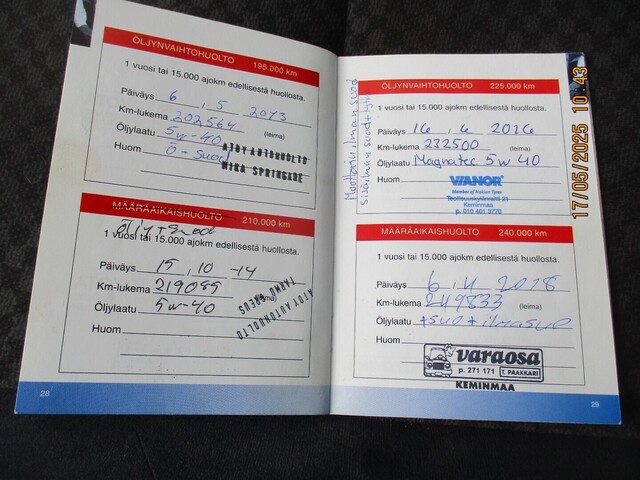 ÖLJYNVAIHTOHUOLTO 195.000 km
1 vuosi tai 15.000 ajokm edellisestä huollosta.
Päiväys 6 . 5 2013
Km-lukema 202564
Öljylaatu 5w-40 (leima)
Huom Ö-suod
ATOY AUTOHUOLTO
MIKA SPRINGARE
MÄÄRÄAIKAISHUOLTO 210.000 km
Öljyt+suod
1 vuosi tai 15.000 ajokm edellisestä huollosta.
Päiväys 15 . 10 -14
Km-lukema 219085
Öljylaatu 5w-40 (leima)
Huom
ATOY AUTOHUOLTO
TARMO GREUS
28
Moottorin ilman suod
sisäilman suod +
ÖLJYNVAIHTOHUOLTO 225.000 km
1 vuosi tai 15.000 ajokm edellisestä huollosta.
Päiväys 16 . 6 2016
Km-lukema 232500 (leima)
Öljylaatu Magnatec 5w40
Huom
VIANOR
Member of Nokian Tyres
Teollisuuskylänraitti 21
Keminmaa
p. 010 401 3770
MÄÄRÄAIKAISHUOLTO 240.000 km
1 vuosi tai 15.000 ajokm edellisestä huollosta.
Päiväys 6 . 4 2018
Km-lukema 249833 (leima)
Öljylaatu +suo +ilmasuo
Huom
varaosa
p. 271 171 T. PAAKKARI
KEMINMAA
29
17/05/2025 10:43